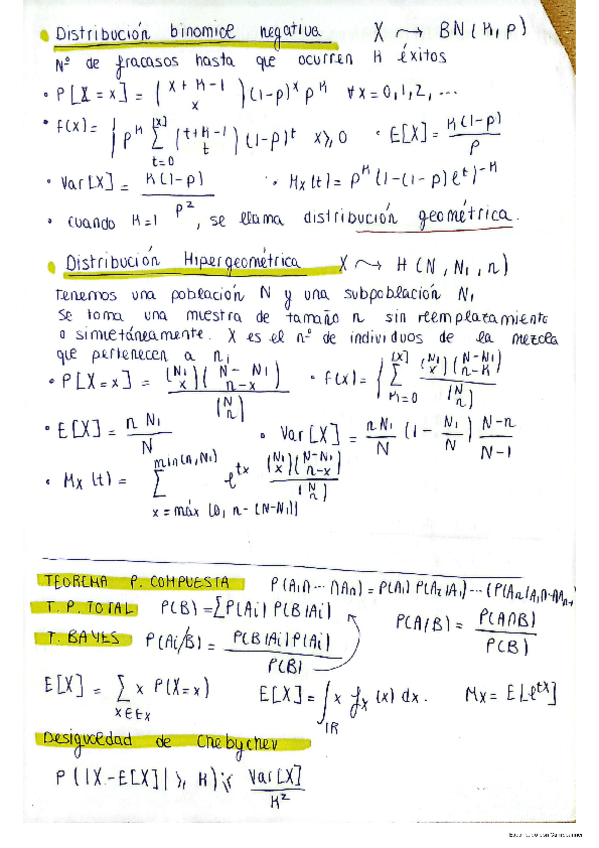 Distribución binomial negativa X ⤳ BN(k,p)
Nº de fracasos hasta que ocurren k éxitos
• P[X=x] = (x+k-1 / x)(1-p)^x p^k ∀x=0,1,2,...
• F(x)= { p^k Σ_{t=0}^{[x]} (t+k-1 / t)(1-p)^t x≥0 • E[X]= k(1-p)/p
• Var[X] = k(1-p)/p² • Mx(t)= p^k (1-(1-p)e^t)^-k
• cuando k=1, se llama distribución geométrica.
Distribución Hipergeométrica X ⤳ H(N, N₁, n)
Tenemos una población N y una subpoblación N₁
Se toma una muestra de tamaño n sin reemplazamiento
o simultáneamente. X es el nº de individuos de la mezcla
que pertenecen a n₁
• P[X=x] = (N₁ / x)(N-N₁ / n-x) / (N / n) • F(x)= { Σ_{k=0}^{[x]} (N₁ / x)(N-N₁ / n-k) / (N / n)
• E[X]= n N₁ / N • Var[X] = nN₁/N (1 - N₁/N) N-n/N-1
• Mx(t) = Σ_{x=máx(0, n-(N-N₁))}^{min(n,N₁)} e^tx (N₁ / x)(N-N₁ / n-x) / (N / n)
TEOREMA P. COMPUESTA P(A₁∩...∩An) = P(A₁) P(A₂/A₁)...(P(An/A₁∩...∩An-1)
T. P. TOTAL P(B) = Σ P(Ai) P(B/Ai) P(A/B) = P(A∩B)/P(B)
T. BAYES P(Ai/B) = P(B/Ai)P(Ai)/P(B)
E[X] = Σ_{x∈Ex} x P(X=x) E[X] = ∫_ℝ x fx(x) dx. Mx = E[e^tX]
Desigualdad de Chebychev
P(|X-E[X]| ≥ k) ≤ Var[X]/k²